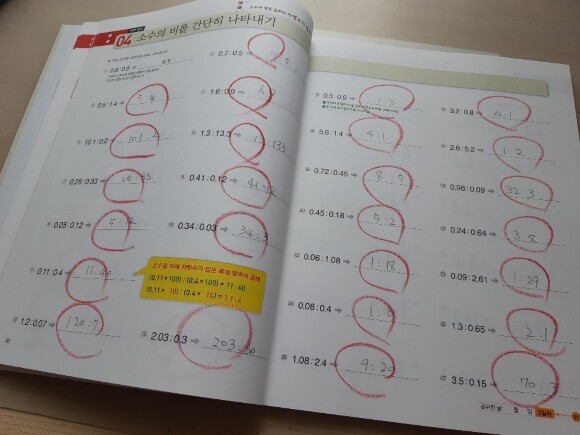 04 소수의 비를 간단히 나타내기
0.5:1.4 ⇒ 5:14
10.1:0.2 ⇒ 101:2
0.25:0.33 ⇒ 25:33
0.05:0.12 ⇒ 5:12
0.11:0.4 ⇒ 11:40
1.2:0.07 ⇒ 120:7
0.7:0.5 ⇒ 7:5
1.6:0.9 ⇒
1.3:13.3 ⇒ 13:133
0.41:0.12 ⇒ 41:12
0.34:0.03 ⇒ 34:3
소수점 아래 자릿수가 많은 쪽에 맞추어 곱해
(0.11×100):(0.4×100)=11:40
(0.11×10):(0.4×10)=1.1:4
2.03:0.3 ⇒ 203:30
0.3:0.9 ⇒ 1:3
5.6:1.4 ⇒ 4:1
0.72:0.45 ⇒ 8:5
0.45:0.18 ⇒ 5:2
0.06:1.08 ⇒ 1:18
0.08:0.4 ⇒ 1:5
1.08:2.4 ⇒ 9:20
3.2:0.8 ⇒ 4:1
2.6:5.2 ⇒ 1:2
0.96:0.09 ⇒ 32:3
0.24:0.64 ⇒ 3:8
0.09:2.61 ⇒ 1:29
1.3:0.65 ⇒ 2:1
3.5:0.15 ⇒ 70:3
공부한 날 월 일